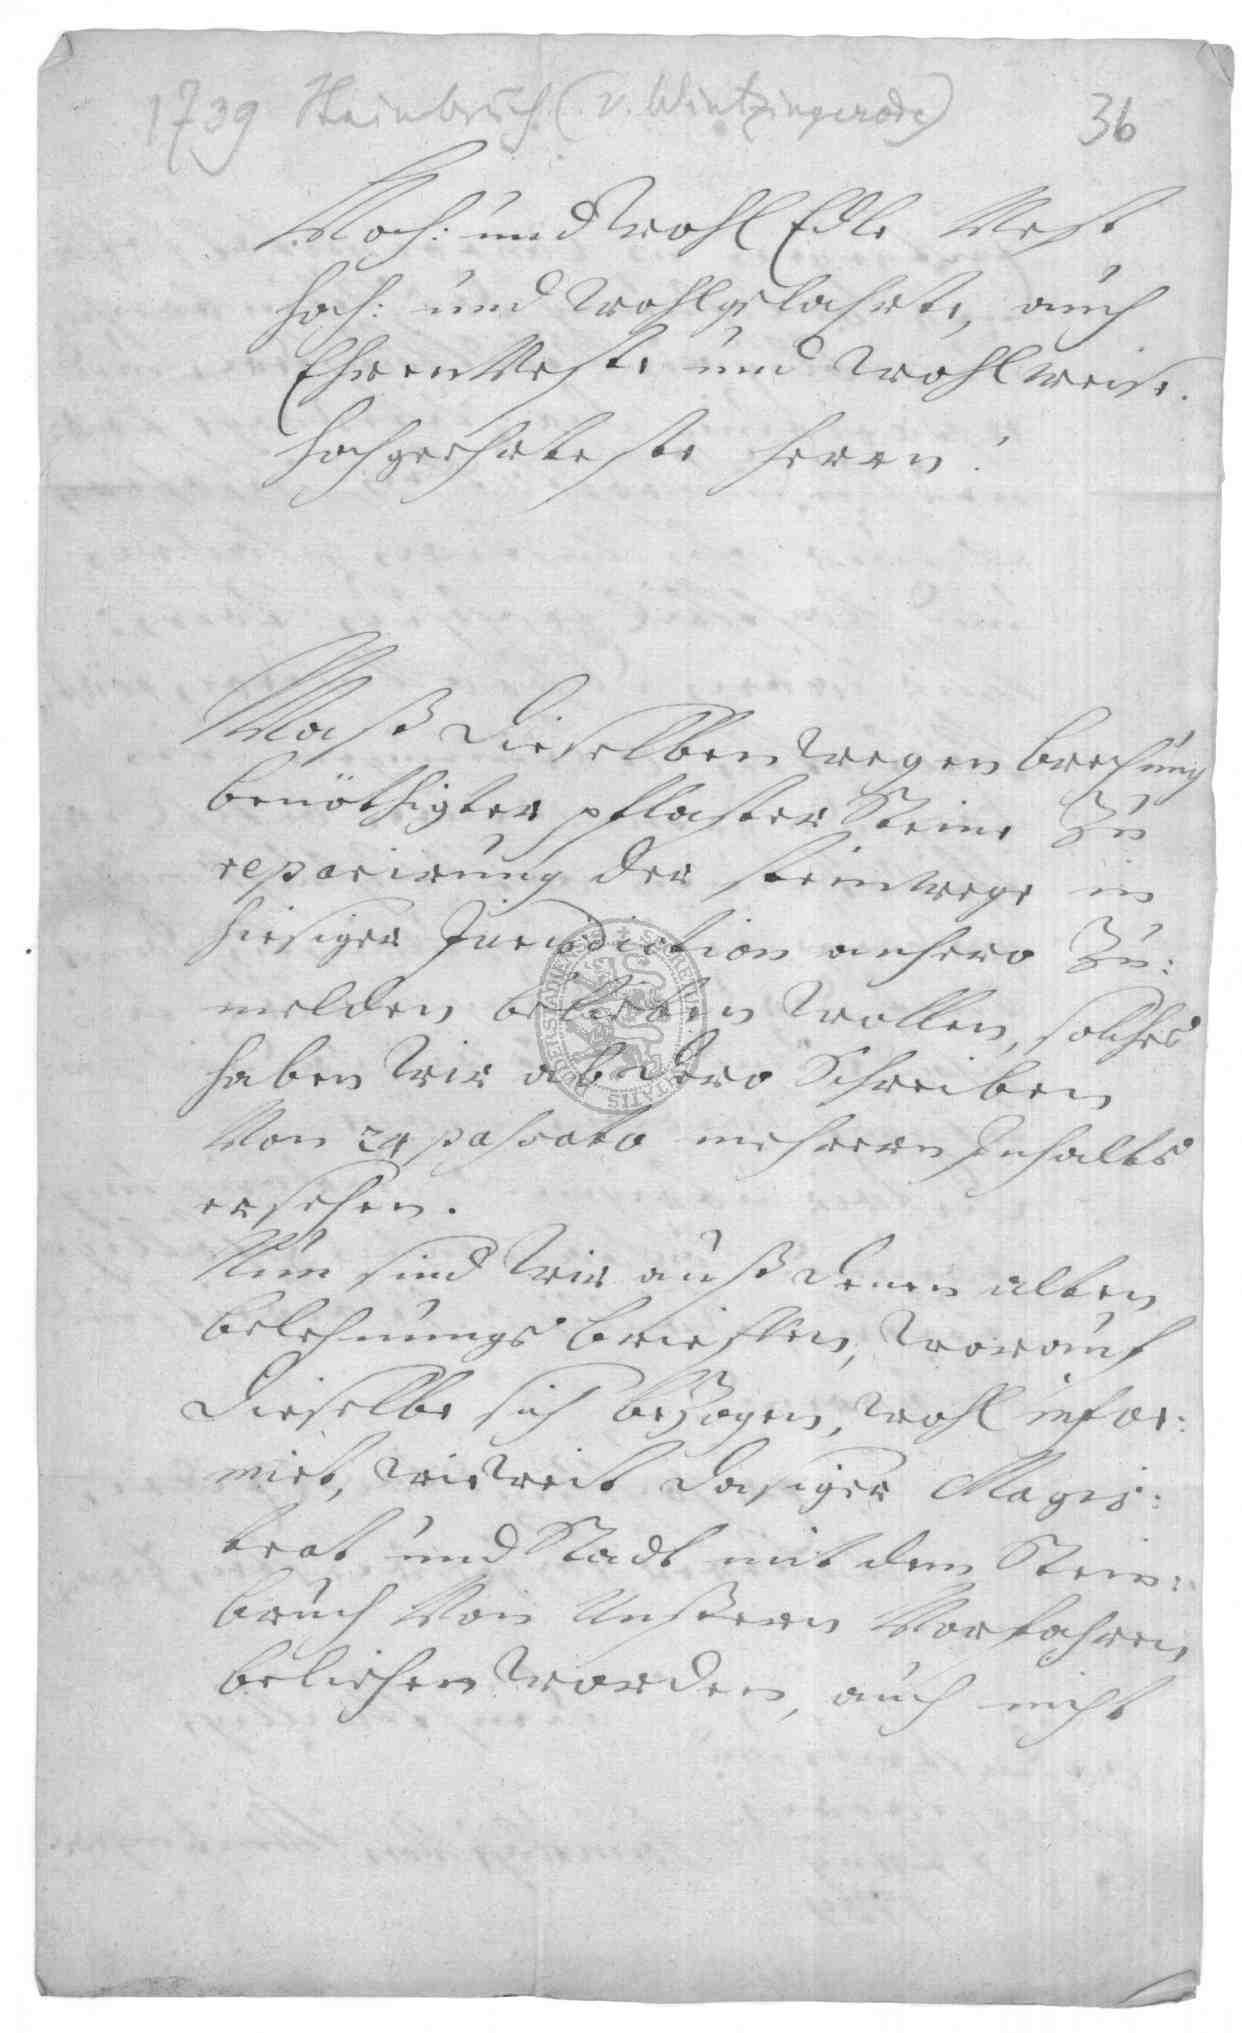 1739 Steinbruch (v. Wintzingerode) 36
Hoch: und Wohl Edle Vest
hoch: und Wohlgelahrte, auch
EhrenVeste und Wohlweise.
Hochgeehrteste Herren!
Waß Dieselben wegen brechung
benöthigter pflaster Steine zu
reparirung der steinwege in
hiesiger Jurisdiction anhero zu:
melden belieben wollen, solches
haben Wir ab Dero Schreiben
Von 24 passato mehrern Inhalts
ersehen.
Nun sind Wir auß denen alten
belehnungs brieffen, worauf
Dieselbe sich bezogen, wohl infor:
mirt, wie weit dasiger Magis:
trat und Stadt mit dem Stein:
bruch Von Unßeren Vorfahren
beliehen worden, auch nicht